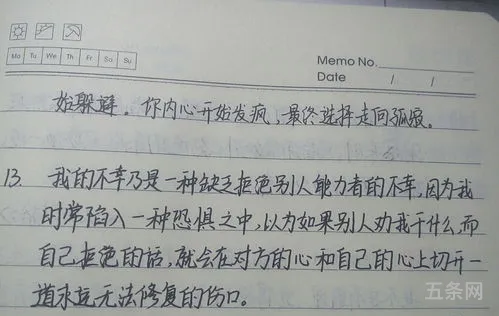 Memo No.
Mo Tu We Th Fr Sa Su
Date / /
始躲避。你内心开始发疯,最终选择走向孤寂。
13. 我的不幸乃是一种缺乏拒绝别人能力者的不幸,因为我
时常陷入一种恐惧之中,以为如果别人劝我干什么,而
自己拒绝的话,就会在对方的心和自己的心上切开一
道永远无法修复的伤口。
五条网